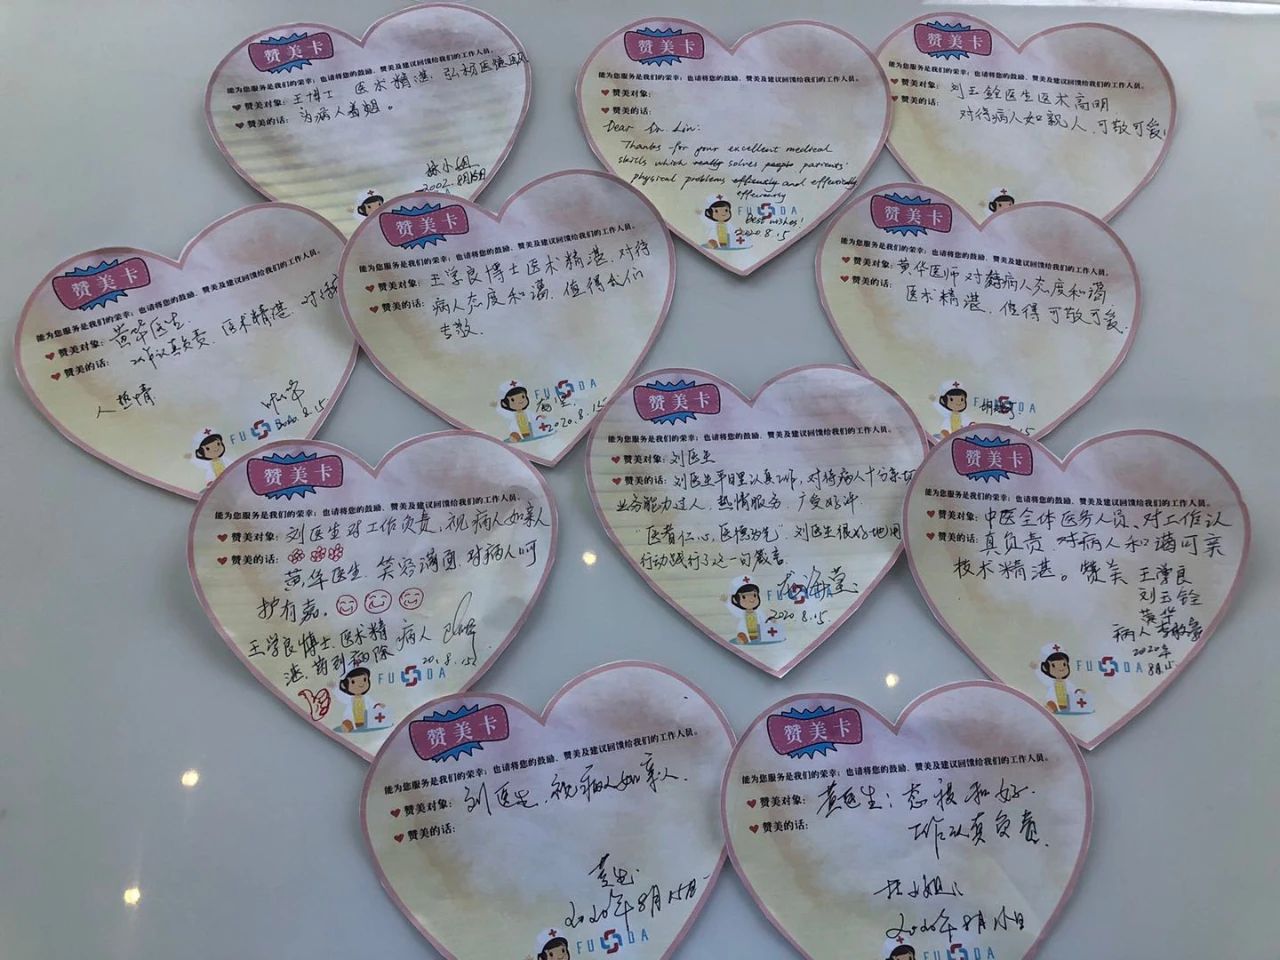 赞美卡
能为您服务是我们的荣幸；也请将您的鼓励、赞美及建议回馈给我们的工作人员。
赞美对象：王博士 医术精湛，弘扬医德医风
赞美的话：为病人着想。
8月15日
赞美卡
能为您服务是我们的荣幸；也请将您的鼓励、赞美及建议回馈给我们的工作人员。
赞美对象：
赞美的话：
Dear Dr. Lin:
Thanks for your excellent medical
skills which really solves people patients'
physical problems efficiently and effectively
efficiently
FUDA
Best wishes!
2020.8.15
赞美卡
能为您服务是我们的荣幸；也请将您的鼓励、赞美及建议回馈给我们的工作人员。
赞美对象：刘玉銓医生医术高明
赞美的话：对待病人如亲人，可敬可爱！
赞美卡
能为您服务是我们的荣幸；也请将您的鼓励、赞美及建议回馈给我们的工作人员。
赞美对象：黄华医生
赞美的话：工作认真负责，医术精湛，对待病
人热情
2020.8.15
FU
赞美卡
能为您服务是我们的荣幸；也请将您的鼓励、赞美及建议回馈给我们的工作人员。
赞美对象：王学良博士医术精湛，对待
赞美的话：病人态度和蔼，值得我们
专敬.
FUDA
2020.8.15
赞美卡
能为您服务是我们的荣幸；也请将您的鼓励、赞美及建议回馈给我们的工作人员。
赞美对象：黄华医师对待病人态度和蔼
赞美的话：医术精湛，值得可敬可爱.
FUDA
8.15
赞美卡
能为您服务是我们的荣幸；也请将您的鼓励、赞美及建议回馈给我们的工作人员。
赞美对象：刘医生对工作负责，视病人如亲人
赞美的话：
黄华医生，笑容满面，对病人呵
护有嘉。
王学良博士，医术精 病人
湛，药到病除 20.8.15
FUDA
赞美卡
能为您服务是我们的荣幸；也请将您的鼓励、赞美及建议回馈给我们的工作人员。
赞美对象：刘医生
赞美的话：刘医生平日里认真工作，对待病人十分亲切
业务能力过人，热情服务，广受好评
“医者仁心，医德为先”，刘医生很好地用
行动践行了这一句箴言.
FUDA
2020.8.15.
赞美卡
能为您服务是我们的荣幸；也请将您的鼓励、赞美及建议回馈给我们的工作人员。
赞美对象：中医全体医务人员，对工作认
赞美的话：真负责，对病人和蔼可亲
技术精湛。赞美 王学良
刘玉銓
黄华
病人
2020年
8月15
赞美卡
能为您服务是我们的荣幸；也请将您的鼓励、赞美及建议回馈给我们的工作人员。
赞美对象：刘医生，视病人如亲人.
赞美的话：
2020年8月15日
FUDA
赞美卡
能为您服务是我们的荣幸；也请将您的鼓励、赞美及建议回馈给我们的工作人员。
赞美对象：黄医生：态度和好.
赞美的话：工作认真负责.
2020年8月15日
FUDA